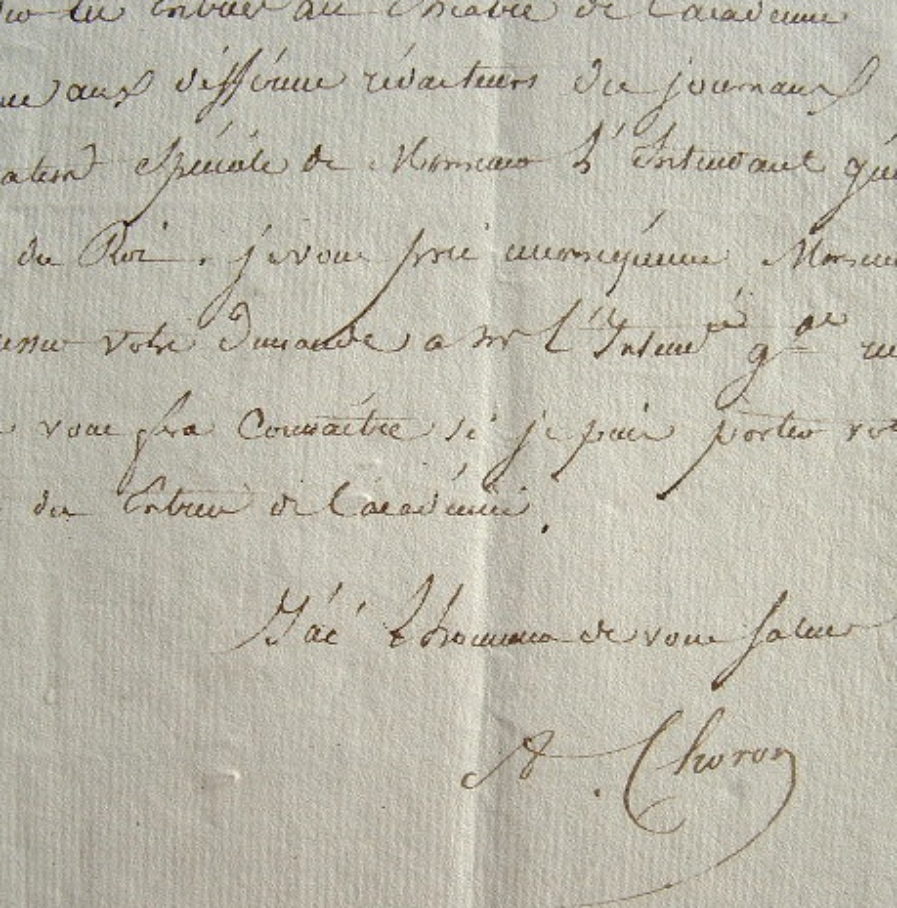 les Entrées au Théâtre de l'académie
aux différens rédacteurs des journaux
spéciale de Monsieur L'Intendant gén
du Roi. je vous prie en conséquence Monsieur
votre demande a mr L'Intend^t g^al
vous fera Connaître si je puis porter vot
des Entrées de l'académie.
J'ai L'honneur de vous saluer
A. Choron